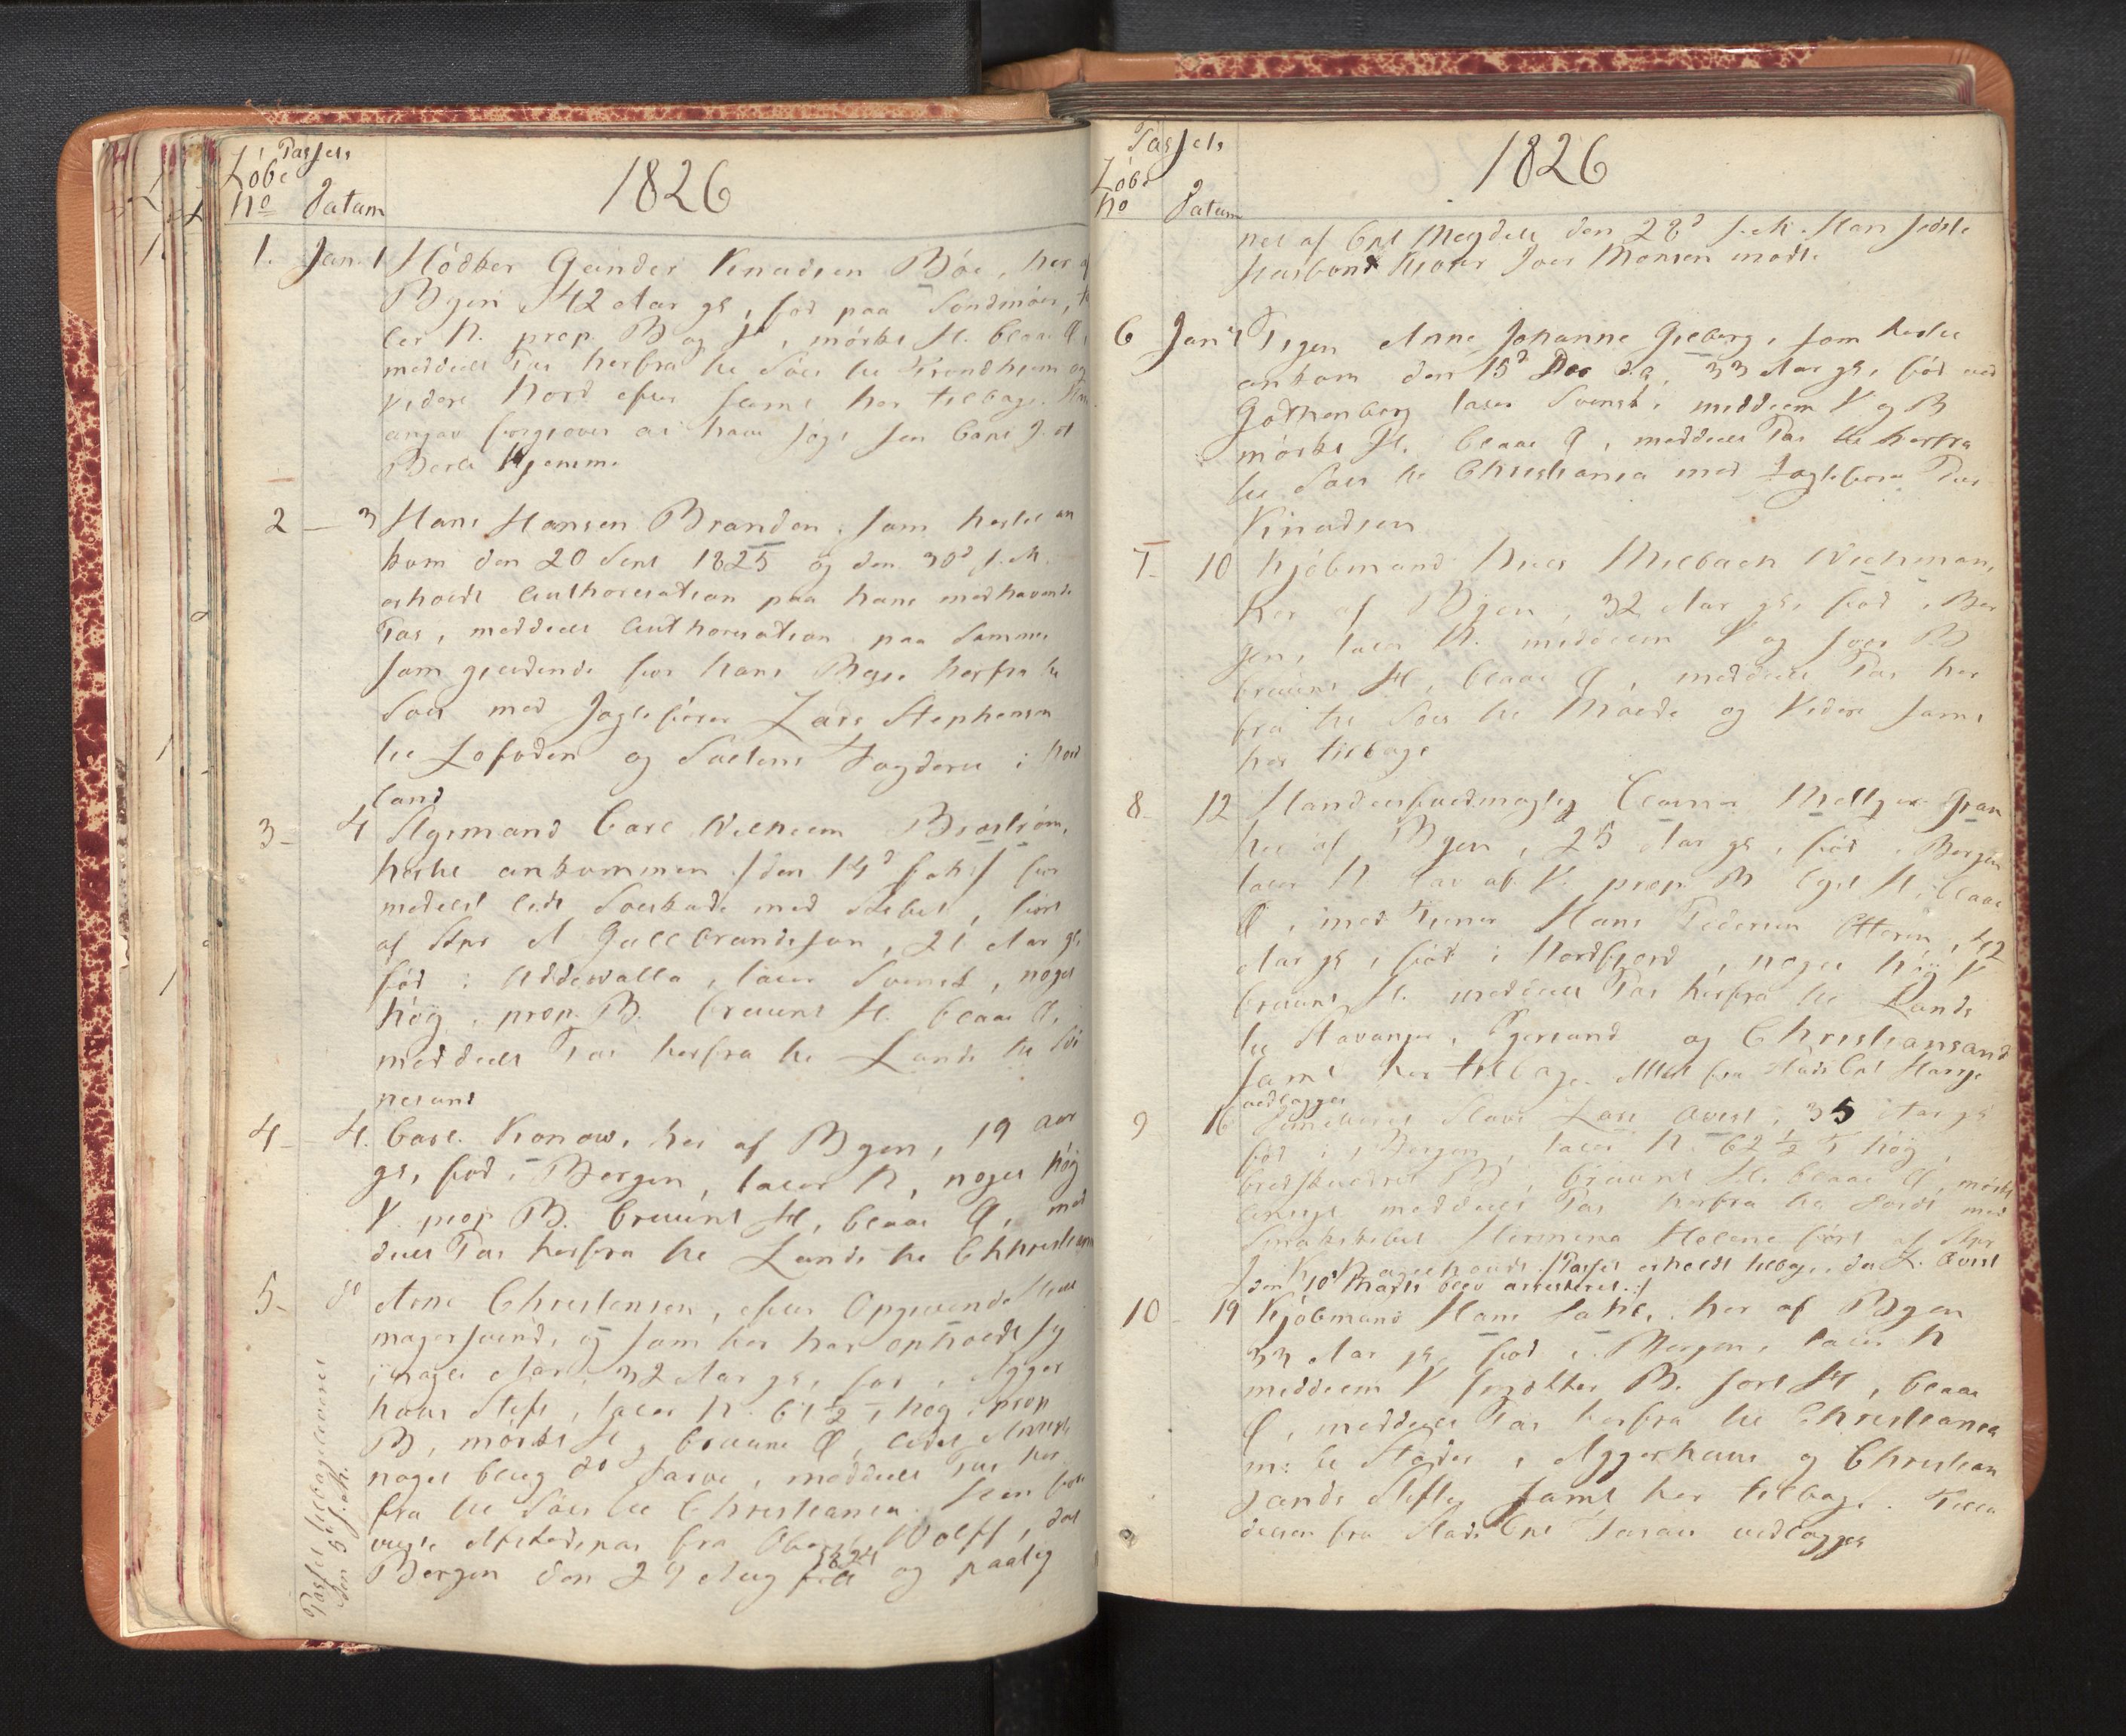 Passets
Løbe
No Datum
1826
1. Jan. 1 Hødker Gunder Knudsen Böe, her af
Byen 42 Aar gl, fød paa Söndmöer, ta
ler N. prop. B og , mörkt H. blaae Ø,
meddeelt Pas herfra til Söes til Trondhiem og
videre Nord efter samt her tilbage. Han
angav forgiæves at have søgt sin
Hjemme
2 — 3 Hans Hansen Brandon, som hertil an
kom den 20 Sept 1825 og den 30d f. M.
erholdt Authorisation paa hans medhavende
Pas, meddeelt Authorisation paa samme
som gieldende for hans Reise herfra til
Söes med Jagtefører Lars Stephensen
til Lofoden og Saltens Fogderie i Nord
land
3 – 4 Styrmand Carl Wilhelm Broström,
hertil ankommen /den 14d f. M./ for
medelst lidt Söeskade med Skibet, fört
af Skpr A Gullbrandsson, 21 Aar gl,
fød i Uddewalla, taler Svensk, noget
höÿ, prop. B. bruunt H. blaae Ø,
meddeelt Pas herfra til Lands til Svi
nesund
4 – 4. Carl Konow, her af Byen, 19 aar
gl, fød i Bergen, taler N, noget höÿ
V prop B. bruunt H, blaae Ø, med
deelt Pas herfra til Lands til Christiania
5 – dº Arne Christensen, efter Opgivende
magersvend, og som her har opholdt sig
i nogle Aar, 32 Aar gl, fød i Agger
huus Stift, taler N. 61½ T, høy, prop
B, mörkt H, bruune Ø, lidet
noget bleeg dº Farve, meddeelt Pas her
fra til Söes til Christiania. Han
viiste Afskedspas fra Oberst Wolff, dat
Bergen den 29 Aug 1824 og paateg
Passet tilbageleveret
den 5 f. M.
Passets
Løbe
No Datum
1826
net af Cpt Meydell den 28d f. M. Hans sidste
Huusbond Joen Monsen mödte
6 Jan 4 Pigen Anne Johanne Gieberg, som hertil
ankom den 15d Dec d.a, 33 Aar gl, fød ved
Gothenborg taler Svensk, middelm V og B
mörkt H. blaae Ø, meddeelt Pas herfra
til Söes til Christiania med Jagtefører
Knudsen
7 – 10 Kjöbmand Nicls Milbach Wichmann,
her af Byen, 32 Aar gl, fød i Ber
gen, taler N. middelm V og svær B
bruunt H, blaae Ø, meddeelt Pas her
fra til Söes til Molde og Videre samt
her tilbage
8 – 12 Handelsfuldmægtig Claus Meltzer Gran
her af Byen, 25 Aar gl, fød i Bergen
taler N lav af V. prop. B lyst H, blaae
Ø, med Tiener Hans Pedersen Otteren, 42
Aar gl, fød i Nordfjord, noget höÿ V
bruunt H. meddeelt Pas herfra til Lands
til Stavanger, Egersund og Christiansand
samt her tilbage. Attest fra Stads Cpt
vedlægges
9 16 Slave Lars Qvist, 35 Aar gl
fød i Bergen, taler N. 62½ T höÿ,
bredskuldret B, bruunt H. blaae Ø, mörk
meddeelt Pas herfra til med
Smakskibet Hermina Helene fört af Skpr
/:Passet erholdt tilbage, da L. Qvist
den 10d Marts blev arresteret.:/
10 – 19 Kjöbmand Hans Sahl, her af Byen
33 Aar gl, fød i Bergen, taler N
middelm V, B. sort H, blaae
Ø, meddeelt Pas herfra til Christiania
m: fl. Stæder i Aggerhuus og Christian
sands Stifter samt her tilbage. Tilla
delsen fra Stads Cpt vedlægges